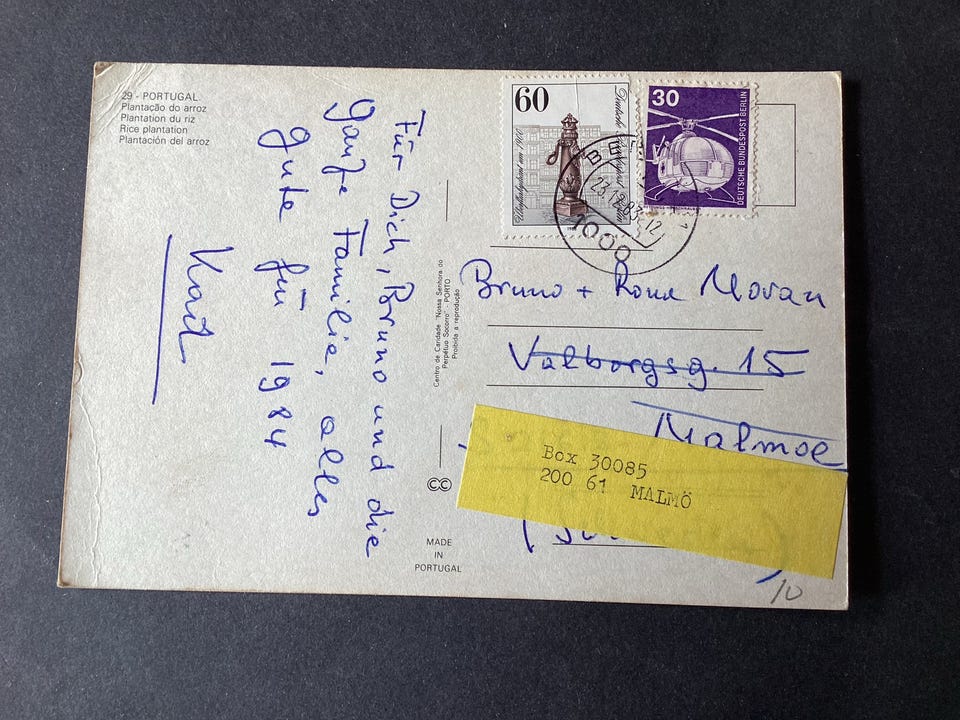 29 - PORTUGAL
Plantação do arroz
Plantation du riz
Rice plantation
Plantación del arroz
Für Dich, Bruno und die
ganze Familie, alles
gute für 1984
Karl
Centro de Caridade "Nossa Senhora do
Perpétuo Socorro" - PORTO
Proibida a reprodução
MADE
IN
PORTUGAL
60
Deutsche Bundespost Berlin
30
DEUTSCHE BUNDESPOST BERLIN
23.12.83-12
1000
Bruno + Rona Moran
Valborgsg. 15
Malmoe
Box 30085
200 61 MALMÖ
10